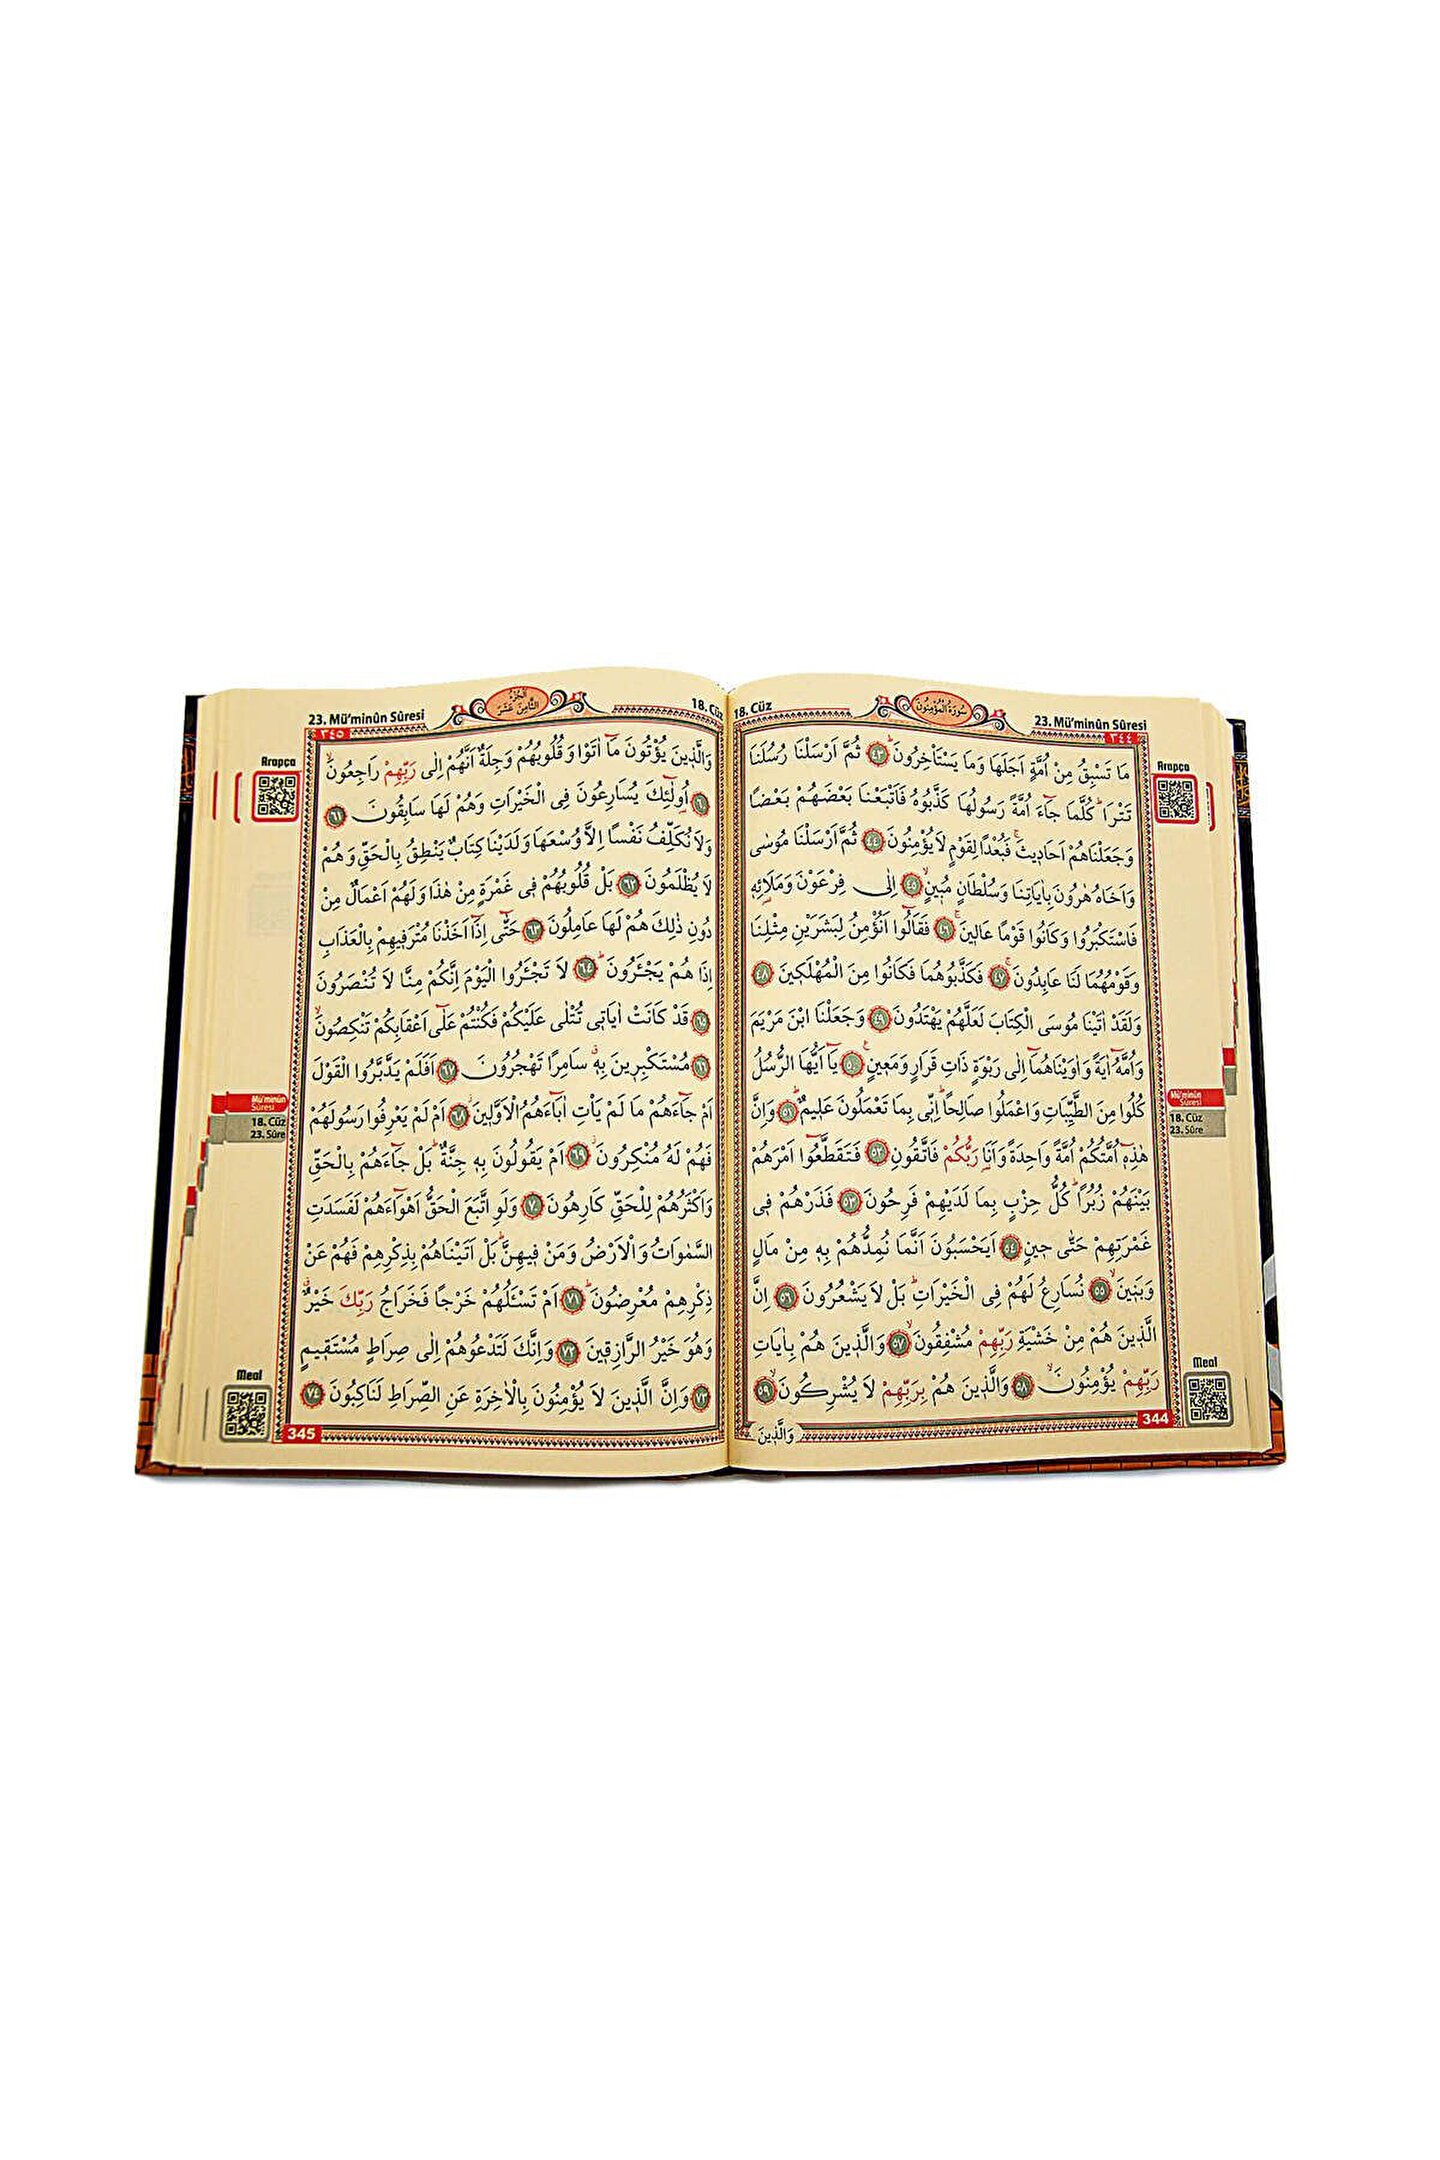 23. Mü'minûn Sûresi
سُورَةُ الْمُؤْمِنُونَ
18. Cüz
٣٤٤
Arapça
مَا تَسْبِقُ مِنْ اُمَّةٍ اَجَلَهَا وَمَا يَسْتَأْخِرُونَ ۜ ﴿٤٣﴾ ثُمَّ اَرْسَلْنَا رُسُلَنَا
تَتْرَاۜ كُلَّمَا جَٓاءَ اُمَّةً رَسُولُهَا كَذَّبُوهُ فَاَتْبَعْنَا بَعْضَهُمْ بَعْضًا
وَجَعَلْنَاهُمْ اَحَادِيثَۚ فَبُعْدًا لِقَوْمٍ لَا يُؤْمِنُونَ ﴿٤٤﴾ ثُمَّ اَرْسَلْنَا مُوسٰى
وَاَخَاهُ هٰرُونَ بِاٰيَاتِنَا وَسُلْطَانٍ مُبِينٍۙ ﴿٤٥﴾ اِلٰى فِرْعَوْنَ وَمَلَا۬ئِه۪
فَاسْتَكْبَرُوا وَكَانُوا قَوْمًا عَالِينَۚ ﴿٤٦﴾ فَقَالُٓوا اَنُؤْمِنُ لِبَشَرَيْنِ مِثْلِنَا
وَقَوْمُهُمَا لَنَا عَابِدُونَۚ ﴿٤٧﴾ فَكَذَّبُوهُمَا فَكَانُوا مِنَ الْمُهْلَكِينَ ﴿٤٨﴾
وَلَقَدْ اٰتَيْنَا مُوسَى الْكِتَابَ لَعَلَّهُمْ يَهْتَدُونَ ﴿٤٩﴾ وَجَعَلْنَا ابْنَ مَرْيَمَ
وَاُمَّهُٓ اٰيَةً وَاٰوَيْنَاهُمَٓا اِلٰى رَبْوَةٍ ذَاتِ قَرَارٍ وَمَعِينٍ۟ ﴿٥٠﴾ يَٓا اَيُّهَا الرُّسُلُ
كُلُوا مِنَ الطَّيِّبَاتِ وَاعْمَلُوا صَالِحًاۜ اِنّ۪ي بِمَا تَعْمَلُونَ عَلِيمٌۜ ﴿٥١﴾ وَاِنَّ
هٰذِه۪ٓ اُمَّتُكُمْ اُمَّةً وَاحِدَةً وَاَنَا۬ رَبُّكُمْ فَاتَّقُونِ ﴿٥٢﴾ فَتَقَطَّعُٓوا اَمْرَهُمْ
بَيْنَهُمْ زُبُرًاۜ كُلُّ حِزْبٍ بِمَا لَدَيْهِمْ فَرِحُونَ ﴿٥٣﴾ فَذَرْهُمْ ف۪ي
غَمْرَتِهِمْ حَتّٰى حِينٍ ﴿٥٤﴾ اَيَحْسَبُونَ اَنَّمَا نُمِدُّهُمْ بِه۪ مِنْ مَالٍ
وَبَنِينَۙ ﴿٥٥﴾ نُسَارِعُ لَهُمْ فِي الْخَيْرَاتِۜ بَلْ لَا يَشْعُرُونَ ﴿٥٦﴾ اِنَّ
الَّذِينَ هُمْ مِنْ خَشْيَةِ رَبِّهِمْ مُشْفِقُونَۙ ﴿٥٧﴾ وَالَّذِينَ هُمْ بِاٰيَاتِ
رَبِّهِمْ يُؤْمِنُونَۙ ﴿٥٨﴾ وَالَّذِينَ هُمْ بِرَبِّهِمْ لَا يُشْرِكُونَۙ ﴿٥٩﴾
وَالَّذِينَ
344
Mü'minûn
Sûresi
18. Cüz
23. Sûre
Meal
18. Cüz
اَلْجُزْءُ
الثَّامِنَ عَشَرَ
23. Mü'minûn Sûresi
٣٤٥
Arapça
وَالَّذِينَ يُؤْتُونَ مَٓا اٰتَوْا وَقُلُوبُهُمْ وَجِلَةٌ اَنَّهُمْ اِلٰى رَبِّهِمْ رَاجِعُونَۙ
﴿٦٠﴾ اُو۬لٰٓئِكَ يُسَارِعُونَ فِي الْخَيْرَاتِ وَهُمْ لَهَا سَابِقُونَ ﴿٦١﴾
وَلَا نُكَلِّفُ نَفْسًا اِلَّا وُسْعَهَا وَلَدَيْنَا كِتَابٌ يَنْطِقُ بِالْحَقِّ وَهُمْ
لَا يُظْلَمُونَ ﴿٦٢﴾ بَلْ قُلُوبُهُمْ ف۪ي غَمْرَةٍ مِنْ هٰذَا وَلَهُمْ اَعْمَالٌ مِنْ
دُونِ ذٰلِكَ هُمْ لَهَا عَامِلُونَ ﴿٦٣﴾ حَتّٰٓى اِذَٓا اَخَذْنَا مُتْرَفِيهِمْ بِالْعَذَابِ
اِذَا هُمْ يَجْـَٔرُونَۜ ﴿٦٤﴾ لَا تَجْـَٔرُوا الْيَوْمَ اِنَّكُمْ مِنَّا لَا تُنْصَرُونَ
﴿٦٥﴾ قَدْ كَانَتْ اٰيَات۪ي تُتْلٰى عَلَيْكُمْ فَكُنْتُمْ عَلٰٓى اَعْقَابِكُمْ تَنْكِصُونَۙ
﴿٦٦﴾ مُسْتَكْبِرِينَ بِه۪ۗ سَامِرًا تَهْجُرُونَ ﴿٦٧﴾ اَفَلَمْ يَدَّبَّرُوا الْقَوْلَ
اَمْ جَٓاءَهُمْ مَا لَمْ يَأْتِ اٰبَٓاءَهُمُ الْاَوَّلِينَۘ ﴿٦٨﴾ اَمْ لَمْ يَعْرِفُوا رَسُولَهُمْ
فَهُمْ لَهُ مُنْكِرُونَۘ ﴿٦٩﴾ اَمْ يَقُولُونَ بِه۪ جِنَّةٌۜ بَلْ جَٓاءَهُمْ بِالْحَقِّ
وَاَكْثَرُهُمْ لِلْحَقِّ كَارِهُونَ ﴿٧٠﴾ وَلَوِ اتَّبَعَ الْحَقُّ اَهْوَٓاءَهُمْ لَفَسَدَتِ
السَّمٰوَاتُ وَالْاَرْضُ وَمَنْ ف۪يهِنَّۜ بَلْ اَتَيْنَاهُمْ بِذِكْرِهِمْ فَهُمْ عَنْ
ذِكْرِهِمْ مُعْرِضُونَۜ ﴿٧١﴾ اَمْ تَسْـَٔلُهُمْ خَرْجًا فَخَرَاجُ رَبِّكَ خَيْرٌۗ
وَهُوَ خَيْرُ الرَّازِقِينَ ﴿٧٢﴾ وَاِنَّكَ لَتَدْعُوهُمْ اِلٰى صِرَاطٍ مُسْتَقِيمٍ
﴿٧٣﴾ وَاِنَّ الَّذِينَ لَا يُؤْمِنُونَ بِالْاٰخِرَةِ عَنِ الصِّرَاطِ لَنَاكِبُونَ ﴿٧٤﴾
345
Mü'minûn
Sûresi
18. Cüz
23. Sûre
Meal